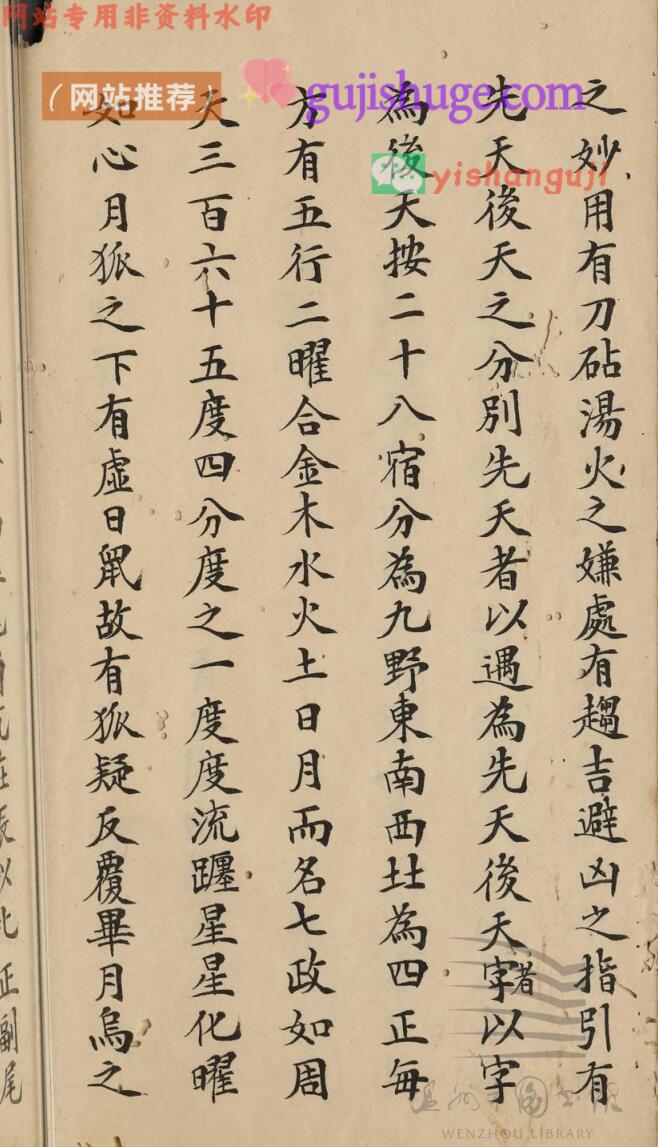 网站专用非资料水印
(网站推荐)
gujishuge.com
yishanguji
之妙用有刀砧湯火之嫌處有趨吉避凶之指引有
先天後天之分別先天者以遇為先天後天字者以字
為後天按二十八宿分為九野東南西北為四正每
方有五行二曜合金木水火土日月而名七政如周
天三百六十五度四分度之一度度流躔星星化曜
如心月狐之下有虛日鼠故有狐疑反覆畢月烏之
WENZHOU LIBRARY